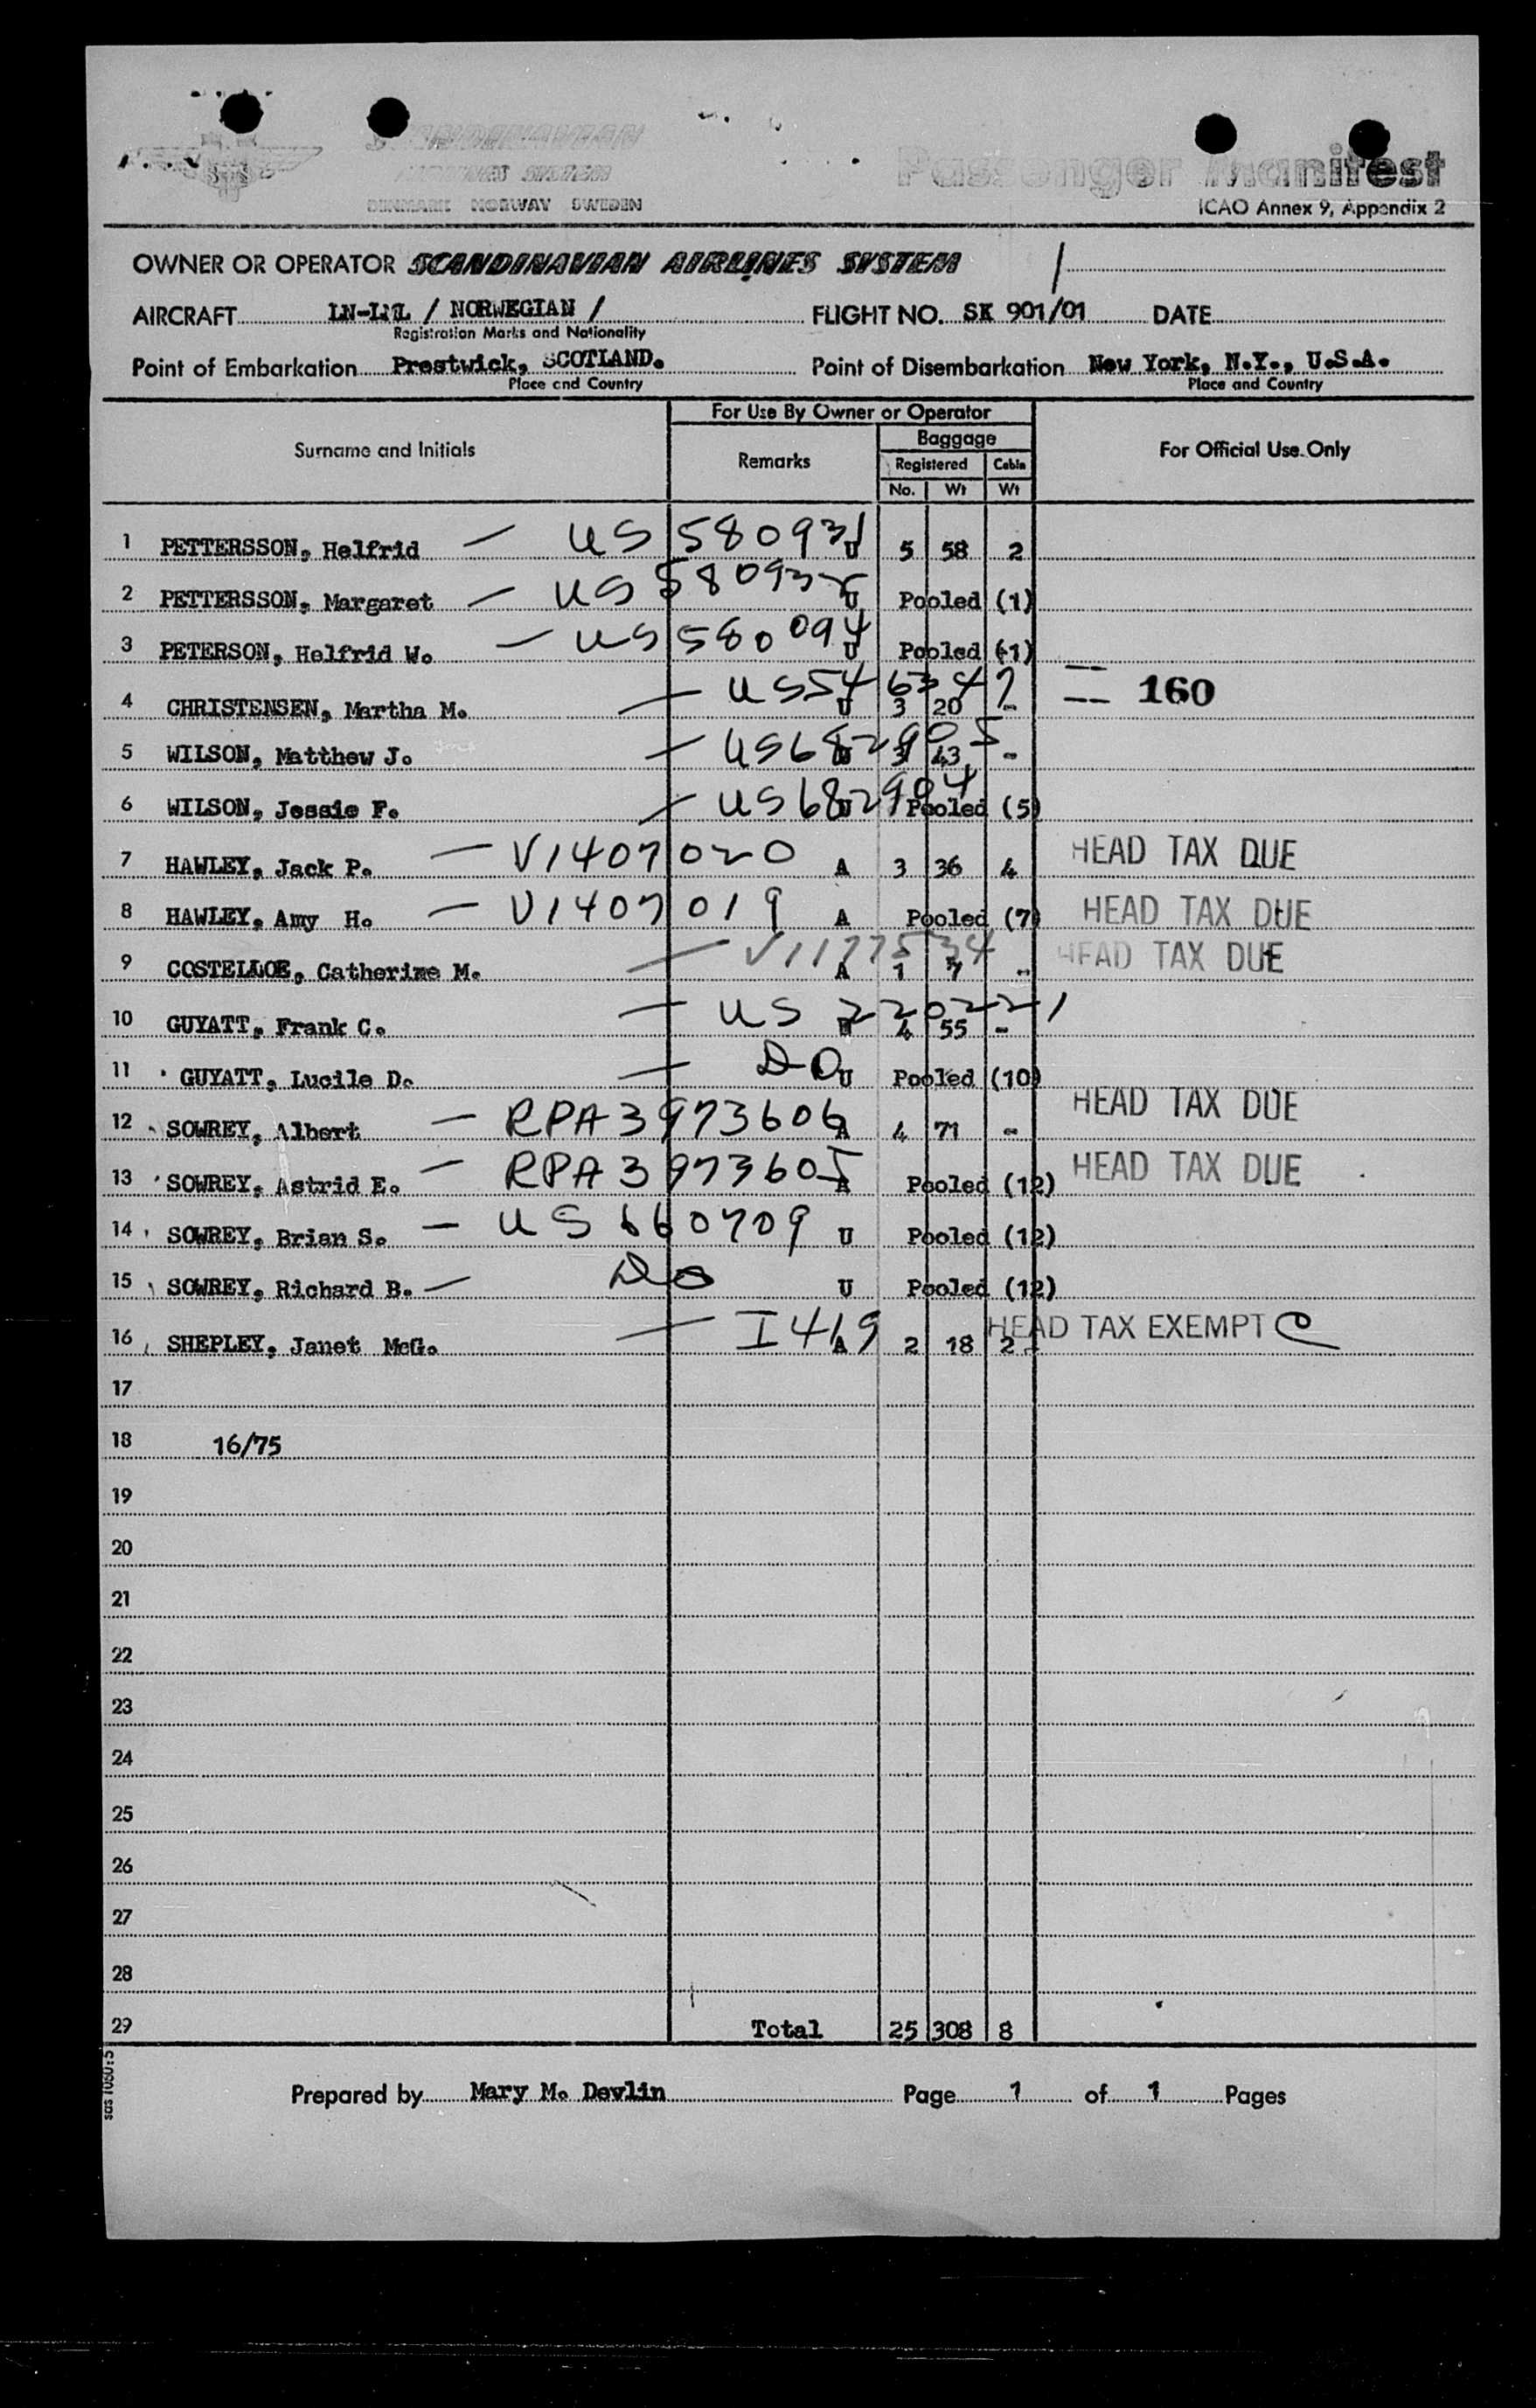 SCANDINAVIAN
AIRLINES SYSTEM
DENMARK NORWAY SWEDEN
Passenger Manifest
ICAO Annex 9, Appendix 2
OWNER OR OPERATOR SCANDINAVIAN AIRLINES SYSTEM
AIRCRAFT / NORWEGIAN / FLIGHT NO. SK 901/01 DATE
Registration Marks and Nationality
Point of Embarkation Prestwick, SCOTLAND. Point of Disembarkation New York, N.Y., U.S.A.
Place and Country Place and Country
For Use By Owner or Operator
Surname and Initials Remarks Baggage For Official Use Only
Registered Cabin
No. Wt Wt
1 PETTERSSON, Helfrid — US 580931 U 5 58 2
2 PETTERSSON, Margaret — US 580932 U Pooled (1)
3 PETERSON, Helfrid W. — US 580094 U Pooled (1)
4 CHRISTENSEN, Martha M. — US 546347 U 3 20 - 160
5 WILSON, Matthew J. — US 682905 3 43 -
6 WILSON, Jessie F. — US 682904 U Pooled (5)
7 HAWLEY, Jack P. — V1407020 A 3 36 4 HEAD TAX DUE
8 HAWLEY, Amy H. — V1407019 A Pooled (7) HEAD TAX DUE
9 COSTELLOE, Catherine M. — V1177534 A 1 7 - HEAD TAX DUE
10 GUYATT, Frank C. — US 220221 U 4 55 -
11 GUYATT, Lucile D. — DO U Pooled (10)
12 SOWREY, Albert — RPA 3973606 A 4 71 - HEAD TAX DUE
13 SOWREY, Astrid E. — RPA 3973605 A Pooled (12) HEAD TAX DUE
14 SOWREY, Brian S. — US 660709 U Pooled (12)
15 SOWREY, Richard B. — Do U Pooled (12)
16 SHEPLEY, Janet McG. — I 419 A 2 18 2 HEAD TAX EXEMPT C
17
18 16/75
19
20
21
22
23
24
25
26
27
28
29 Total 25 308 8
Prepared by Mary M. Devlin Page 1 of 1 Pages
sas 1080:5